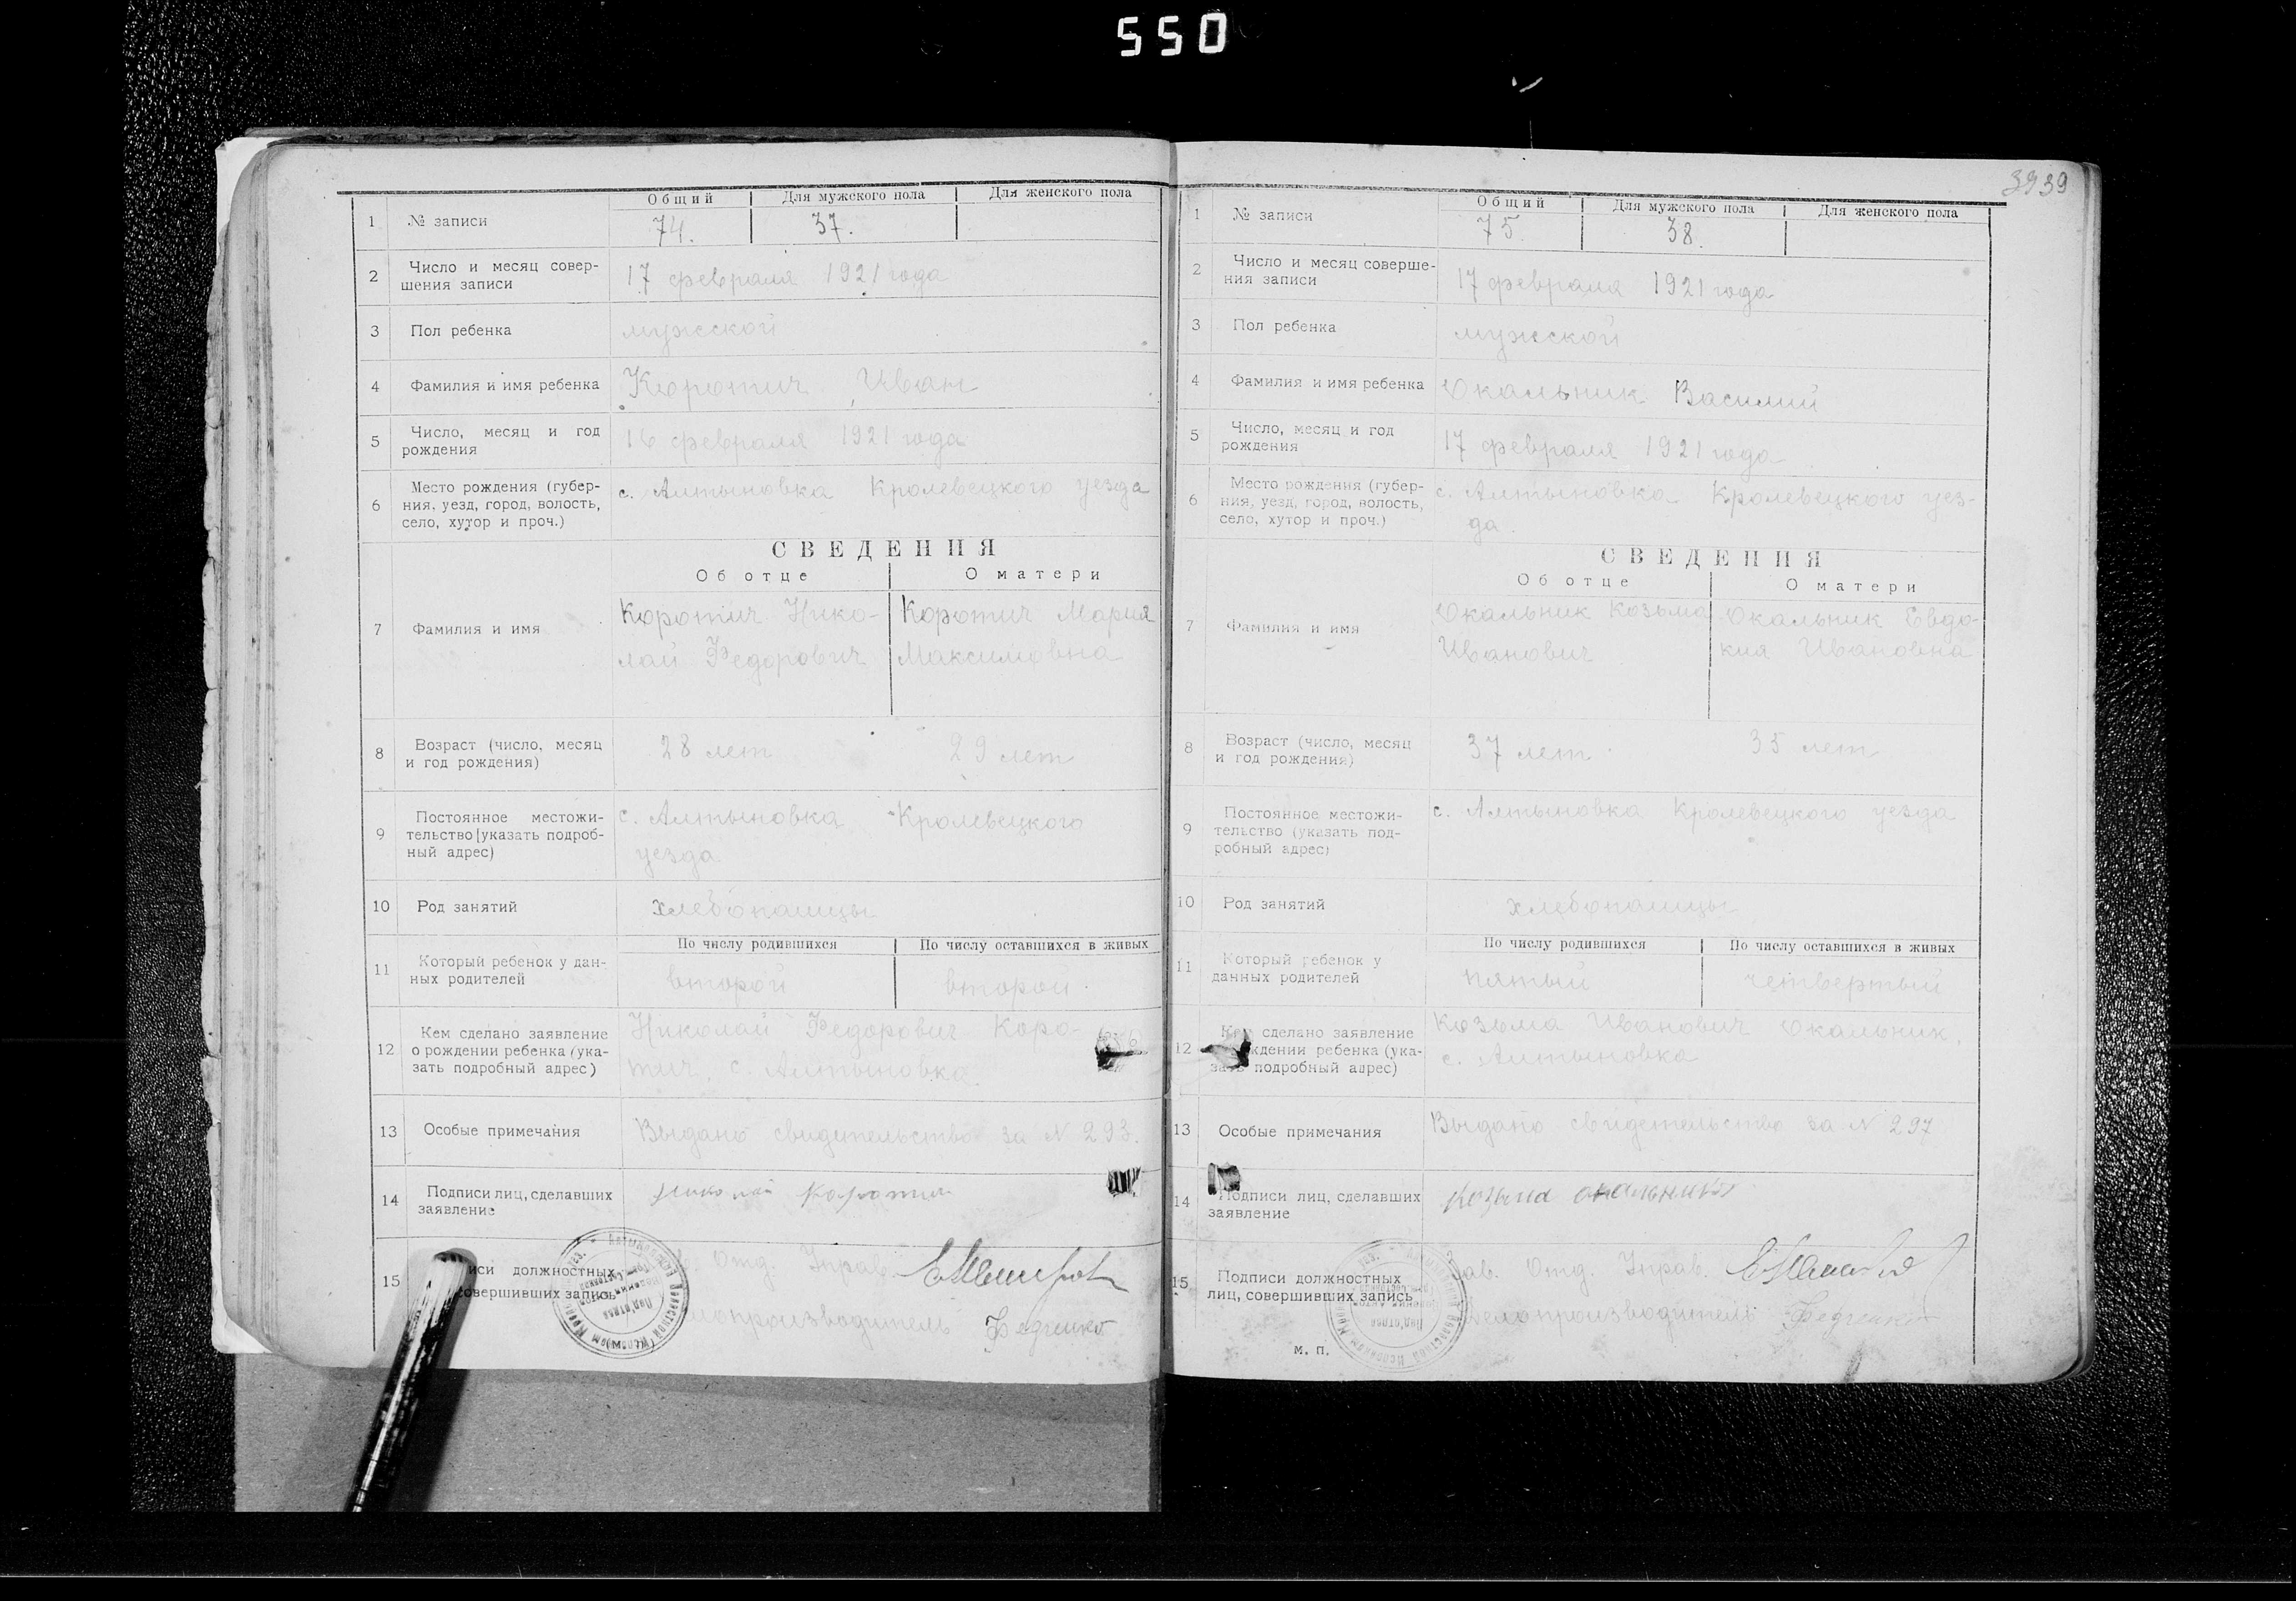 550
Общий Для мужского пола Для женского пола
1 № записи 74. 37.
2 Число и месяц совер-
шения записи
17 февраля 1921 года
3 Пол ребенка мужской
4 Фамилия и имя ребенка Коротич Иван
5 Число, месяц и год
рождения
16 февраля 1921 года
6 Место рождения (губер-
ния, уезд, город, волость,
село, хутор и проч.)
с. Алтыновка Кролевецкого уезда
СВЕДЕНИЯ
Об отце О матери
7 Фамилия и имя
Коротич Нико- Коротич Мария
лай Федорович Максимовна
8 Возраст (число, месяц
и год рождения)
28 лет 29 лет
9 Постоянное местожи-
тельство [указать подроб-
ный адрес)
с. Алтыновка Кролевецкого
уезда
10 Род занятий хлебопашцы
По числу родившихся По числу оставшихся в живых
11 Который ребенок у дан-
ных родителей
второй второй
12 Кем сделано заявление
о рождении ребенка (ука-
зать подробный адрес)
Николай Федорович Коро-
тич с. Алтыновка
13 Особые примечания Выдано свидетельство за N 293.
14 Подписи лиц, сделавших
заявление
Николай Коротич
15 должностных
совершивших запись
Отд. Управ.
Федченко
3939
Общий Для мужского пола Для женского пола
1 № записи 75. 38.
2 Число и месяц соверше-
ния записи
17 февраля 1921 года
3 Пол ребенка мужской
4 Фамилия и имя ребенка Окальник Василий
5 Число, месяц и год
рождения
17 февраля 1921 года
6 Место рождения (губер-
ния, уезд, город, волость,
село, хутор и проч.)
с. Алтыновка Кролевецкого уез-
да.
СВЕДЕНИЯ
Об отце О матери
7 Фамилия и имя
Окальник Козьма Окальник Евдо-
Иванович кия Ивановна
8 Возраст (число, месяц
и год рождения)
37 лет 35 лет
9 Постоянное местожи-
тельство (указать под-
робный адрес)
с. Алтыновка Кролевецкого уезда
10 Род занятий хлебопашцы
По числу родившихся По числу оставшихся в живых
11 Который ребенок у
данных родителей
пятый четвертый
12 Кем сделано заявление
рождении ребенка (ука-
зать подробный адрес)
Козьма Иванович Окальник,
с. Алтыновка
13 Особые примечания Выдано свидетельство за N 297
14 Подписи лиц, сделавших
заявление
Козьма окальник
15 Подписи должностных
лиц, совершивших запись
Зав. Отд. Управ.
Делопроизводитель Федченко
м. п.